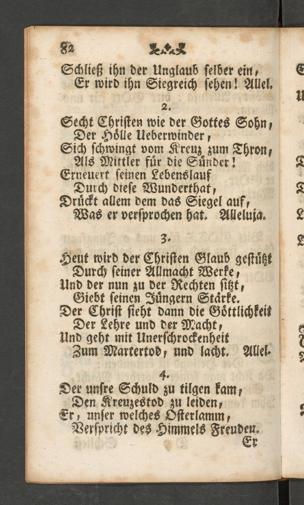 82
Schließ ihn der Unglaub selber ein,
Er wird ihn Siegreich sehen! Allel.
2.
Secht Christen wie der Gottes Sohn,
Der Hölle Ueberwinder,
Sich schwingt vom Kreuz zum Thron,
Als Mittler für die Sünder!
Erneuert seinen Lebenslauf
Durch diese Wunderthat,
Drückt allem dem das Siegel auf,
Was er versprochen hat. Alleluja.
3.
Heut wird der Christen Glaub gestützt
Durch seiner Allmacht Werke,
Und der nun zu der Rechten sitzt,
Giebt seinen Jüngern Stärke.
Der Christ sieht dann die Göttlichkeit
Der Lehre und der Macht,
Und geht mit Unerschrockenheit
Zum Martertod, und lacht. Allel.
4.
Der unsre Schuld zu tilgen kam,
Den Kreuzestod zu leiden,
Er, unser welches Osterlamm,
Verspricht des Himmels Freuden.
Er